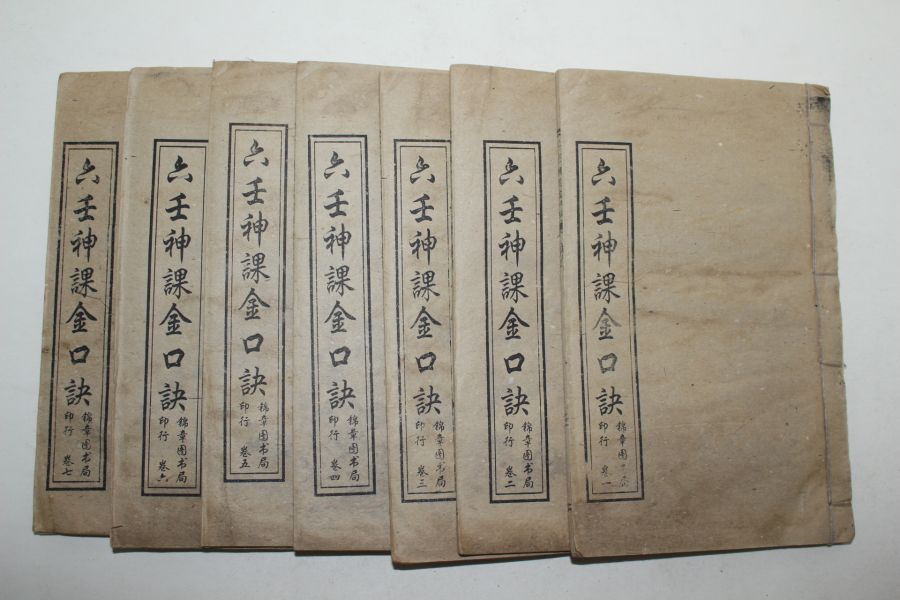 六壬神課金口訣
錦章图局
印行 卷一
六壬神課金口訣
錦章图书局
印行 卷二
六壬神課金口訣
錦章图书局
印行 卷三
六壬神課金口訣
錦章图书局
印行 卷四
六壬神課金口訣
錦章图书局
印行 卷五
六壬神課金口訣
錦章图书局
印行 卷六
六壬神課金口訣
錦章图书局
印行 卷七